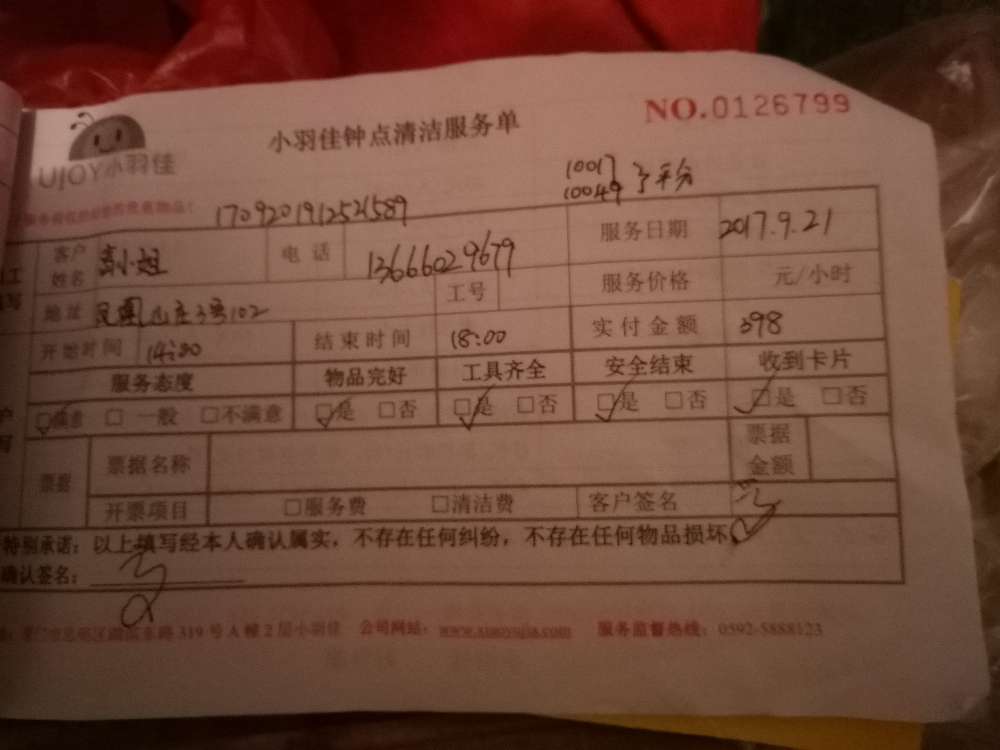 NO.0126799
小羽佳钟点清洁服务单
UJOY小羽佳
10017
10049 平分
1709201912521589
客户姓名 小姐 电话 13666029679 服务日期 2017.9.21
地址 3号102 工号 服务价格 元/小时
开始时间 14:00 结束时间 18:00 实付金额 398
服务态度 物品完好 工具齐全 安全结束 收到卡片
☑满意 □一般 □不满意 ☑是 □否 ☑是 □否 ☑是 □否 ☑是 □否
票据 票据名称 票据金额
开票项目 □服务费 □清洁费 客户签名
特别承诺：以上填写经本人确认属实，不存在任何纠纷，不存在任何物品损坏
确认签名：
319号A幢2层小羽佳 公司网站： 服务监督热线：0592-5888123